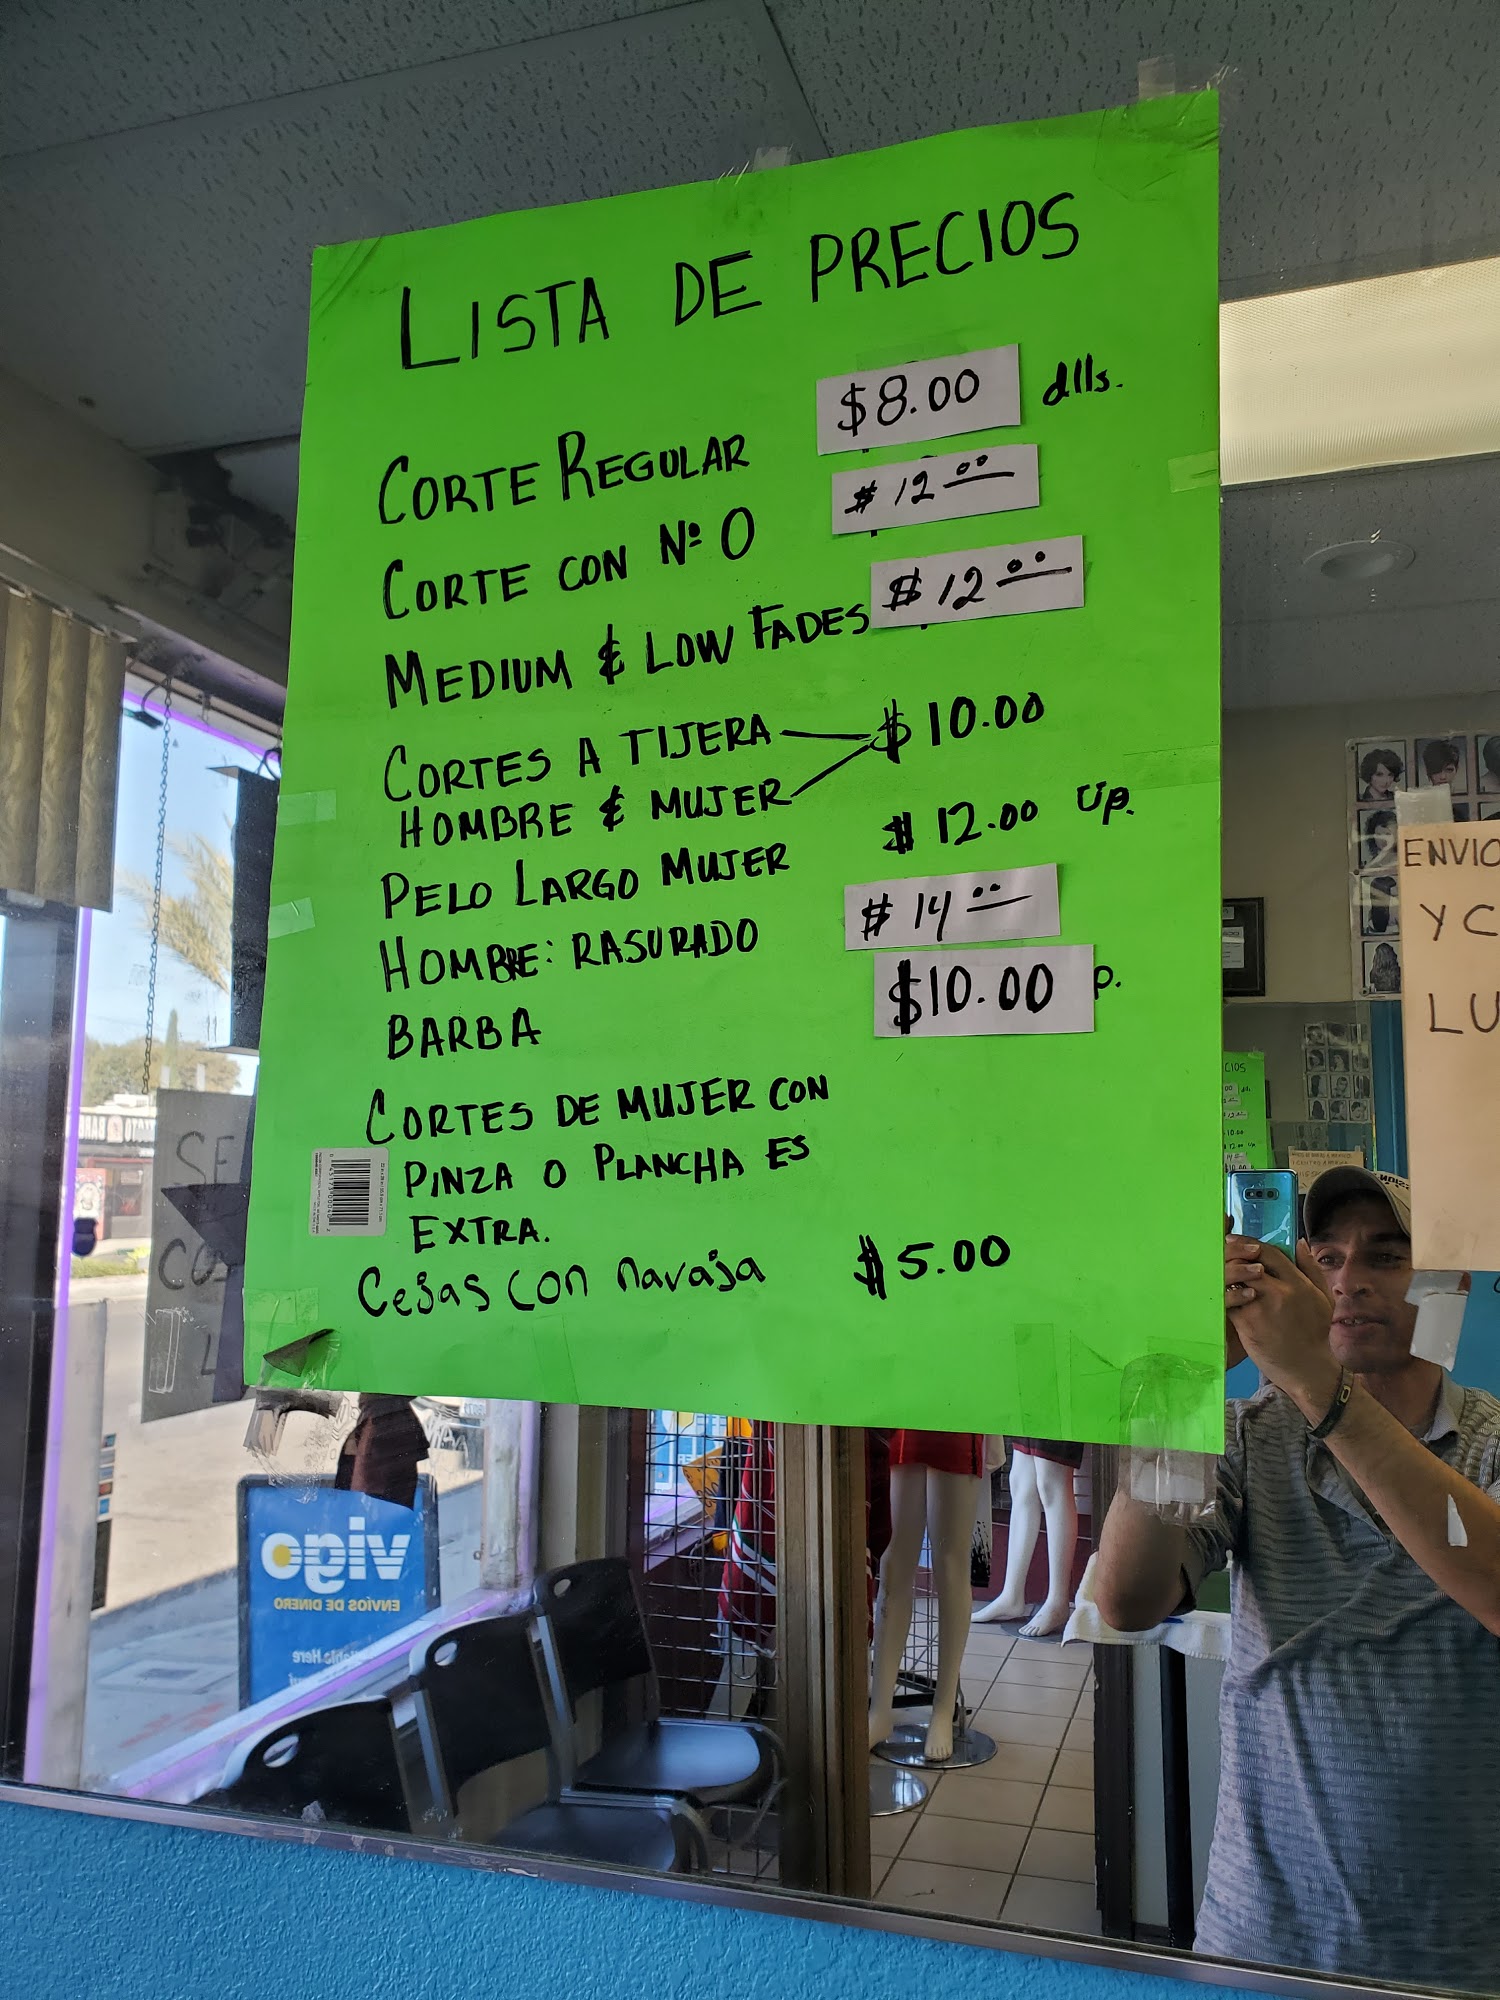 LISTA DE PRECIOS
CORTE REGULAR $8.00 dlls.
CORTE CON Nº 0 $12.00
MEDIUM & LOW FADES $12.00
CORTES A TIJERA $10.00
HOMBRE & MUJER
PELO LARGO MUJER $12.00 Up.
HOMBRE: RASURADO $14.00
BARBA $10.00 p.
CORTES DE MUJER CON
PINZA O PLANCHA ES
EXTRA.
Cejas con navaja $5.00
ENVIO
Y C
LU
vigo
ENVÍOS DE DINERO
Here